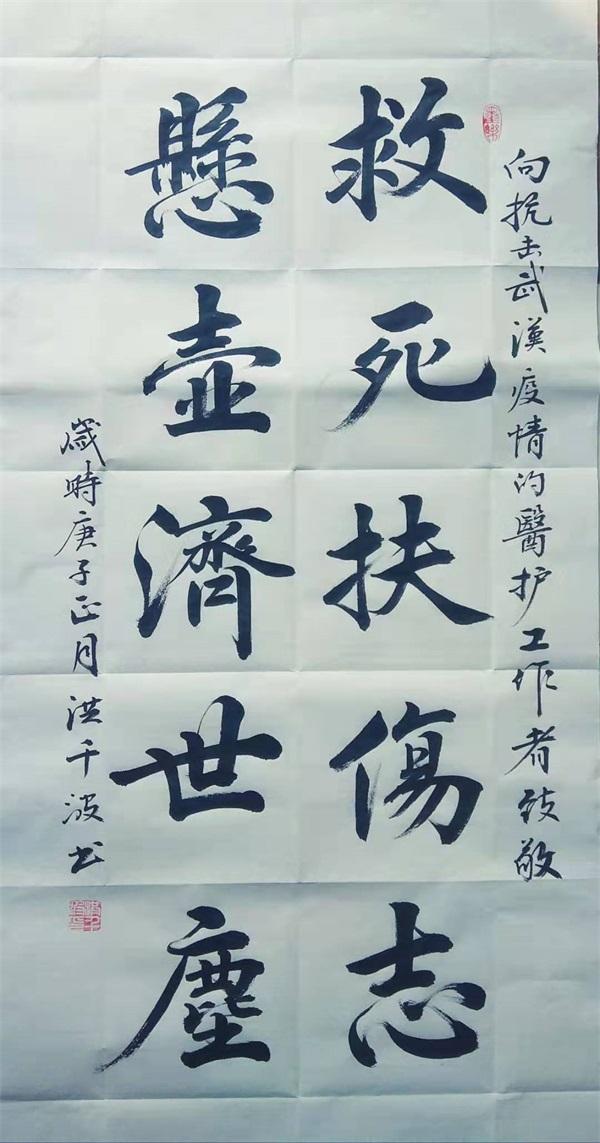 向抗击武漢疫情的醫护工作者致敬
救死扶傷志
懸壺濟世塵
歲時庚子正月洪千波书